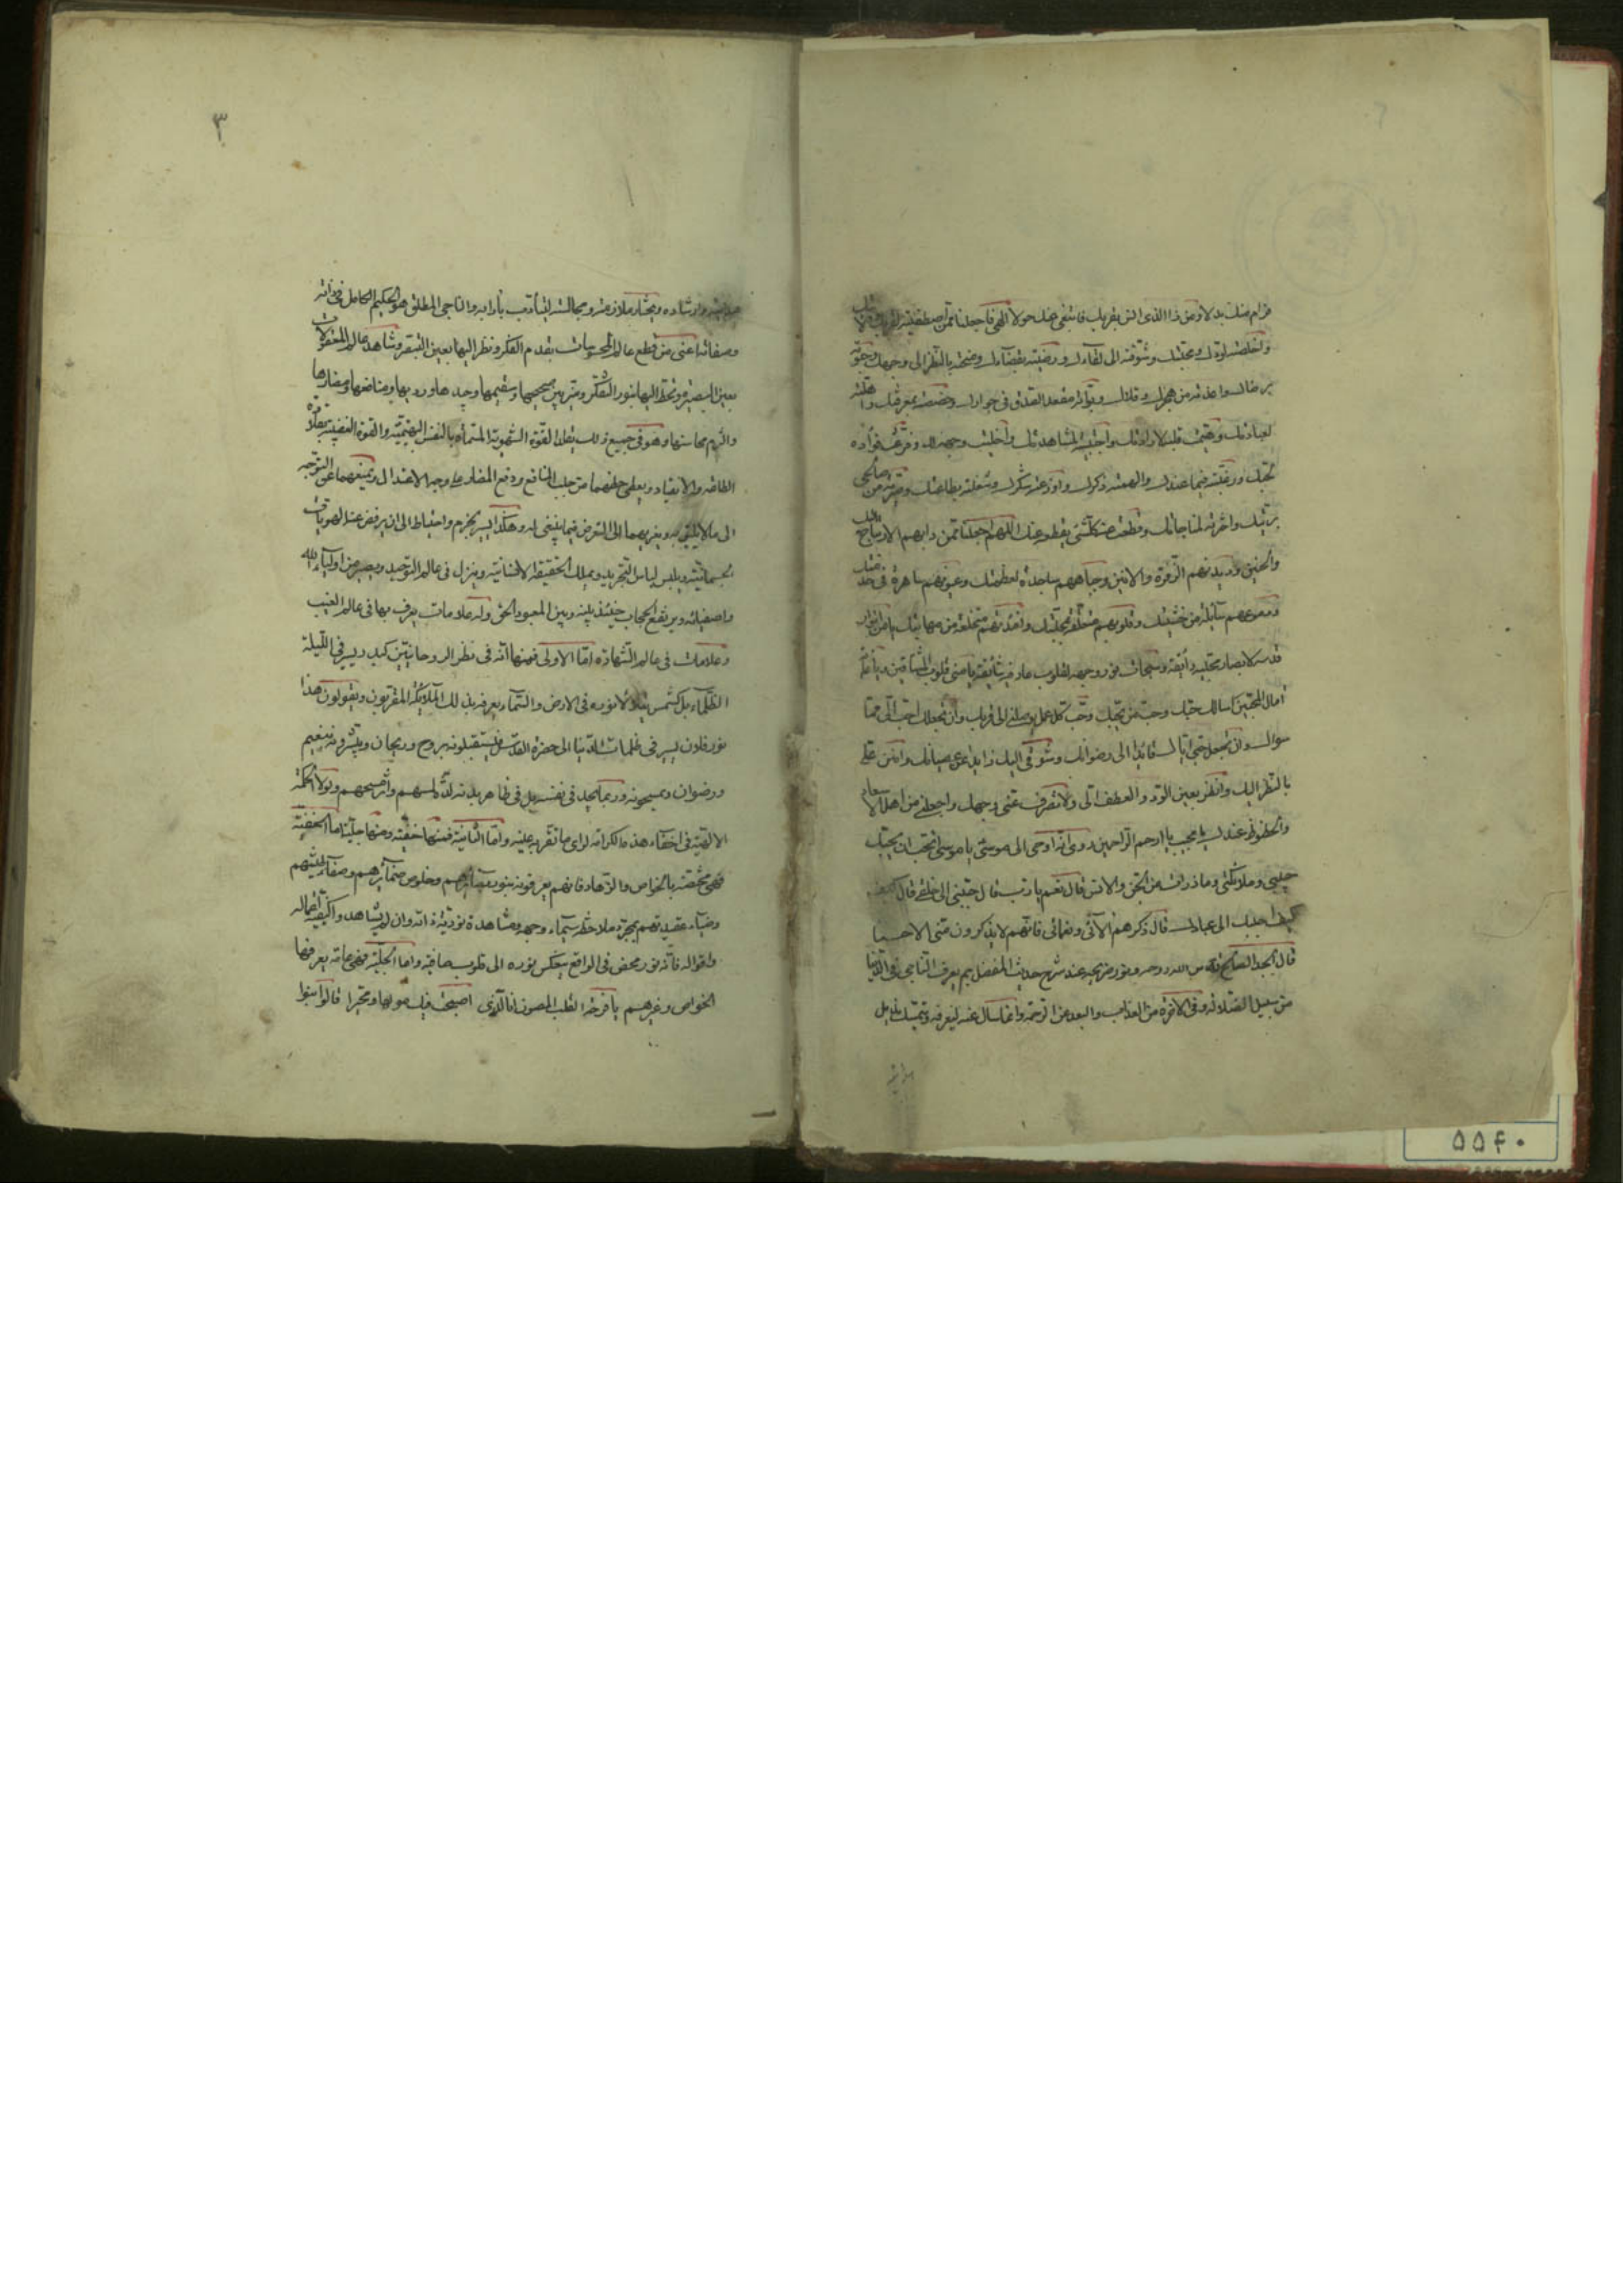 فرام منك بدلا ومن ذا الذى انس بقربك فابتغى عنك حولا الهى فاجعلنا ممن اصطفيته لقربك وولايتك
واخلصته لودك ومحبتك وشوقته الى لقاءك ورضيته بقضآءك ومنحته بالنظر الى وجهك وحبوته
برضاك واعذته من هجرك وقلاك وبوأته مقعد الصدق فى جوارك وخصصته بمعرفتك واهلته
لعبادتك وهيمت قلبه لارادتك واجتبيته لمشاهدتك واخليت وجهه لك وفرغت فؤاده
لحبك ورغبته فيما عندك والهمته ذكرك واوزعته شكرك وشغلته بطاعتك وصيرته من صالحى
بريتك واخترته لمناجاتك وقطعت عنه كلشئ يقطعه عنك اللهم اجعلنا ممن دابهم الارتياح اليك
والحنين وديدنهم الزفرة والانين وجباههم ساجدة لعظمتك وعيونهم ساهرة فى خدمتك
ودموعهم سآئلة من خشيتك وقلوبهم متعلقة بمحبتك وافئدتهم منخلعة من مهابتك يا من انوار
قدسه لابصار محبيه رائقة وسبحات نور وجهه لقلوب عارفيه شآئقة يا منى قلوب المشتاقين ويا غاية
آمال المحبين اسالك حبك وحب من يحبك وحب كل عمل يوصلنى الى قربك وان تجعلك احب الى مما
سواك وان تجعل حبى اياك قائدا الى رضوانك وشوقى اليك ذايدا عن عصيانك وامنن على
بالنظر اليك وانظر بعين الود والعطف الى ولا تصرف عنى وجهك واجعلنى من اهل الاسعاد
والحظوة عندك يا مجيب يا ارحم الراحمين روى انه اوحى الى موسى يا موسى اتحب ان يحبك
جنتى وملائكتى وما ذرات من الجن والانس قال نعم يا رب قال حببنى الى خلقى قال كيف
احببك الى عبادك قال ذكرهم الآئى ونعمائى فانهم لا يذكرون منى الا حسنا
قال الجد الصالح قدس الله روحه ونور ضريحه عند شرح حديث المفضل بم يعرف الناجى فى الدنيا
من سبيل الضلالة وفى الاخرة من العذاب والبعد من الرحمة وانما سال عنه ليعرفه ويتمسك بذيل
هدايته
٣
هدايته وارشاده ويختار ملازمته ومجالسته ليتأدب بآدابه والناجى المطلق هو الحكيم الكامل فى ذاته
وصفاته اعنى من قطع عالم المحسوسات بقدم الفكر ونظر اليها بعين التبصر وشاهد عالم المعقولات
بعين البصيرة ونظر اليها بنور التفكر وميز بين صحيحها وسقيمها وجيدها ورديها ومنافعها ومضارها
والزم محاسنها وهو فى جميع ذلك يقلد القوة الشهوية المسماة بالنفس البهيمية والقوة الغضبية بقلادة
الطاعة والانقياد ويعطى حظهما من جلب المنافع ودفع المضار على وجه الاعتدال ويمنعهما عن التوجه
الى ما لا يليق به ويغريهما الى التعرض فيما ينبغى له وهكذا يسير بحزم واحتياط الى ان يرفض عنه الهويات
الجسمانية ويلبس لباس التجريد ويملك الحقيقة الانسانية وينزل فى عالم التوحيد ويصير من اولياء الله
واصفيائه ويرتفع الحجاب حينئذ بينه وبين المعبود الحق وله علامات يعرف بها فى عالم الغيب
وعلامات فى عالم الشهادة اما الاولى فمنها انه فى نظر الروحانيين كبدر يسير فى الليلة
الظلماء بل كشمس يتلألأ نوره فى الارض والسماء يعرفه بذلك الملائكة المقربون ويقولون هذا
نور فلان يسير فى ظلمات الدنيا الى حضرة القدس فيستقبلونه بروح وريحان ويبشرونه بنعيم
ورضوان ويمسحونه وربما يجد فى نفسه بل فى ظاهر بدنه لذة لمسهم واثر مسحهم ولولا الحكمة
الالهية فى اخفاء هذه الكرامة لراى ما تقر به عليه واما الثانية فمنها خفية ومنها جلية اما الخفية
فهى مختصة بالخواص والزهاد فانهم يعرفونه بنور بصايرهم وخلوص ضمآئرهم وصفآء طينتهم
وضياء عقيدتهم بمجرد ملاحظة سيماء وجهه ومشاهدة نورية ذاته وان لم يشاهدوا كيفية افعاله
واقواله فانه نور محض فى الواقع ينعكس نوره الى قلوب صافية واما الجلية فهى عامة يعرفها
الخواص وغيرهم يا فرحة القلب المصون انا الذى اصبحت فيك مولها ومتحيرا قالوا
٥٥۴٠